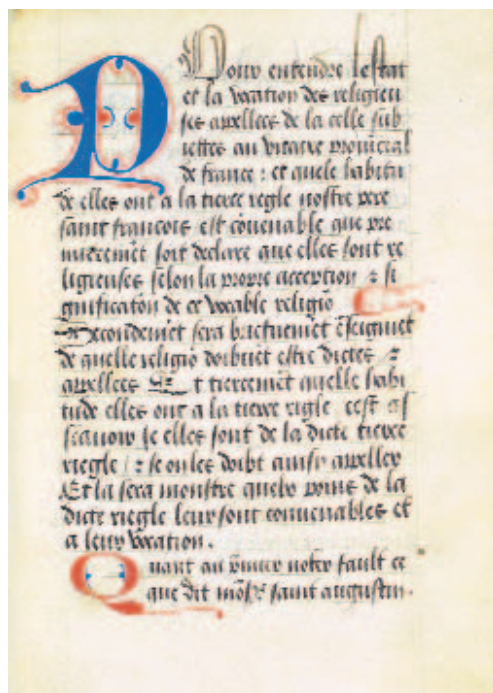 Pour entendre lestat
et la vocation des religieu
ses appellees de la celle sub
iettes au vicaire prouincal
de france : et quele habitu
de elles ont a la tierce regle nostre pere
saint francois est cōuenable que pre
mieremēt soit declare que elles sont re
ligieuses selon la propre acception : si
gnification de ce vocable religiō
Secondemēt sera briefuemēt ēseignet
de quelle religiō doibuēt estre dictes :
appellees Et tiercemēt quelle habi
tude elles ont a la tierce rigle cest as
scauoir se elles sont de la dicte tierce
riegle : se on les doibt ainsy appeller
Et la sera monstre quelx poins de la
dicte riegle leur sont conuenables et
a leur vocation.
Quant au p̄mier notер fault ce
que dit mōsr saint augustin.